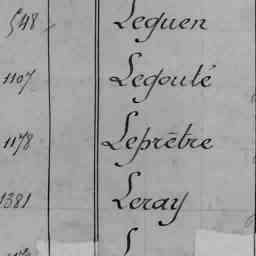 548 Leguen
1107 Legoulé
1178 Leprêtre
1381 Leray